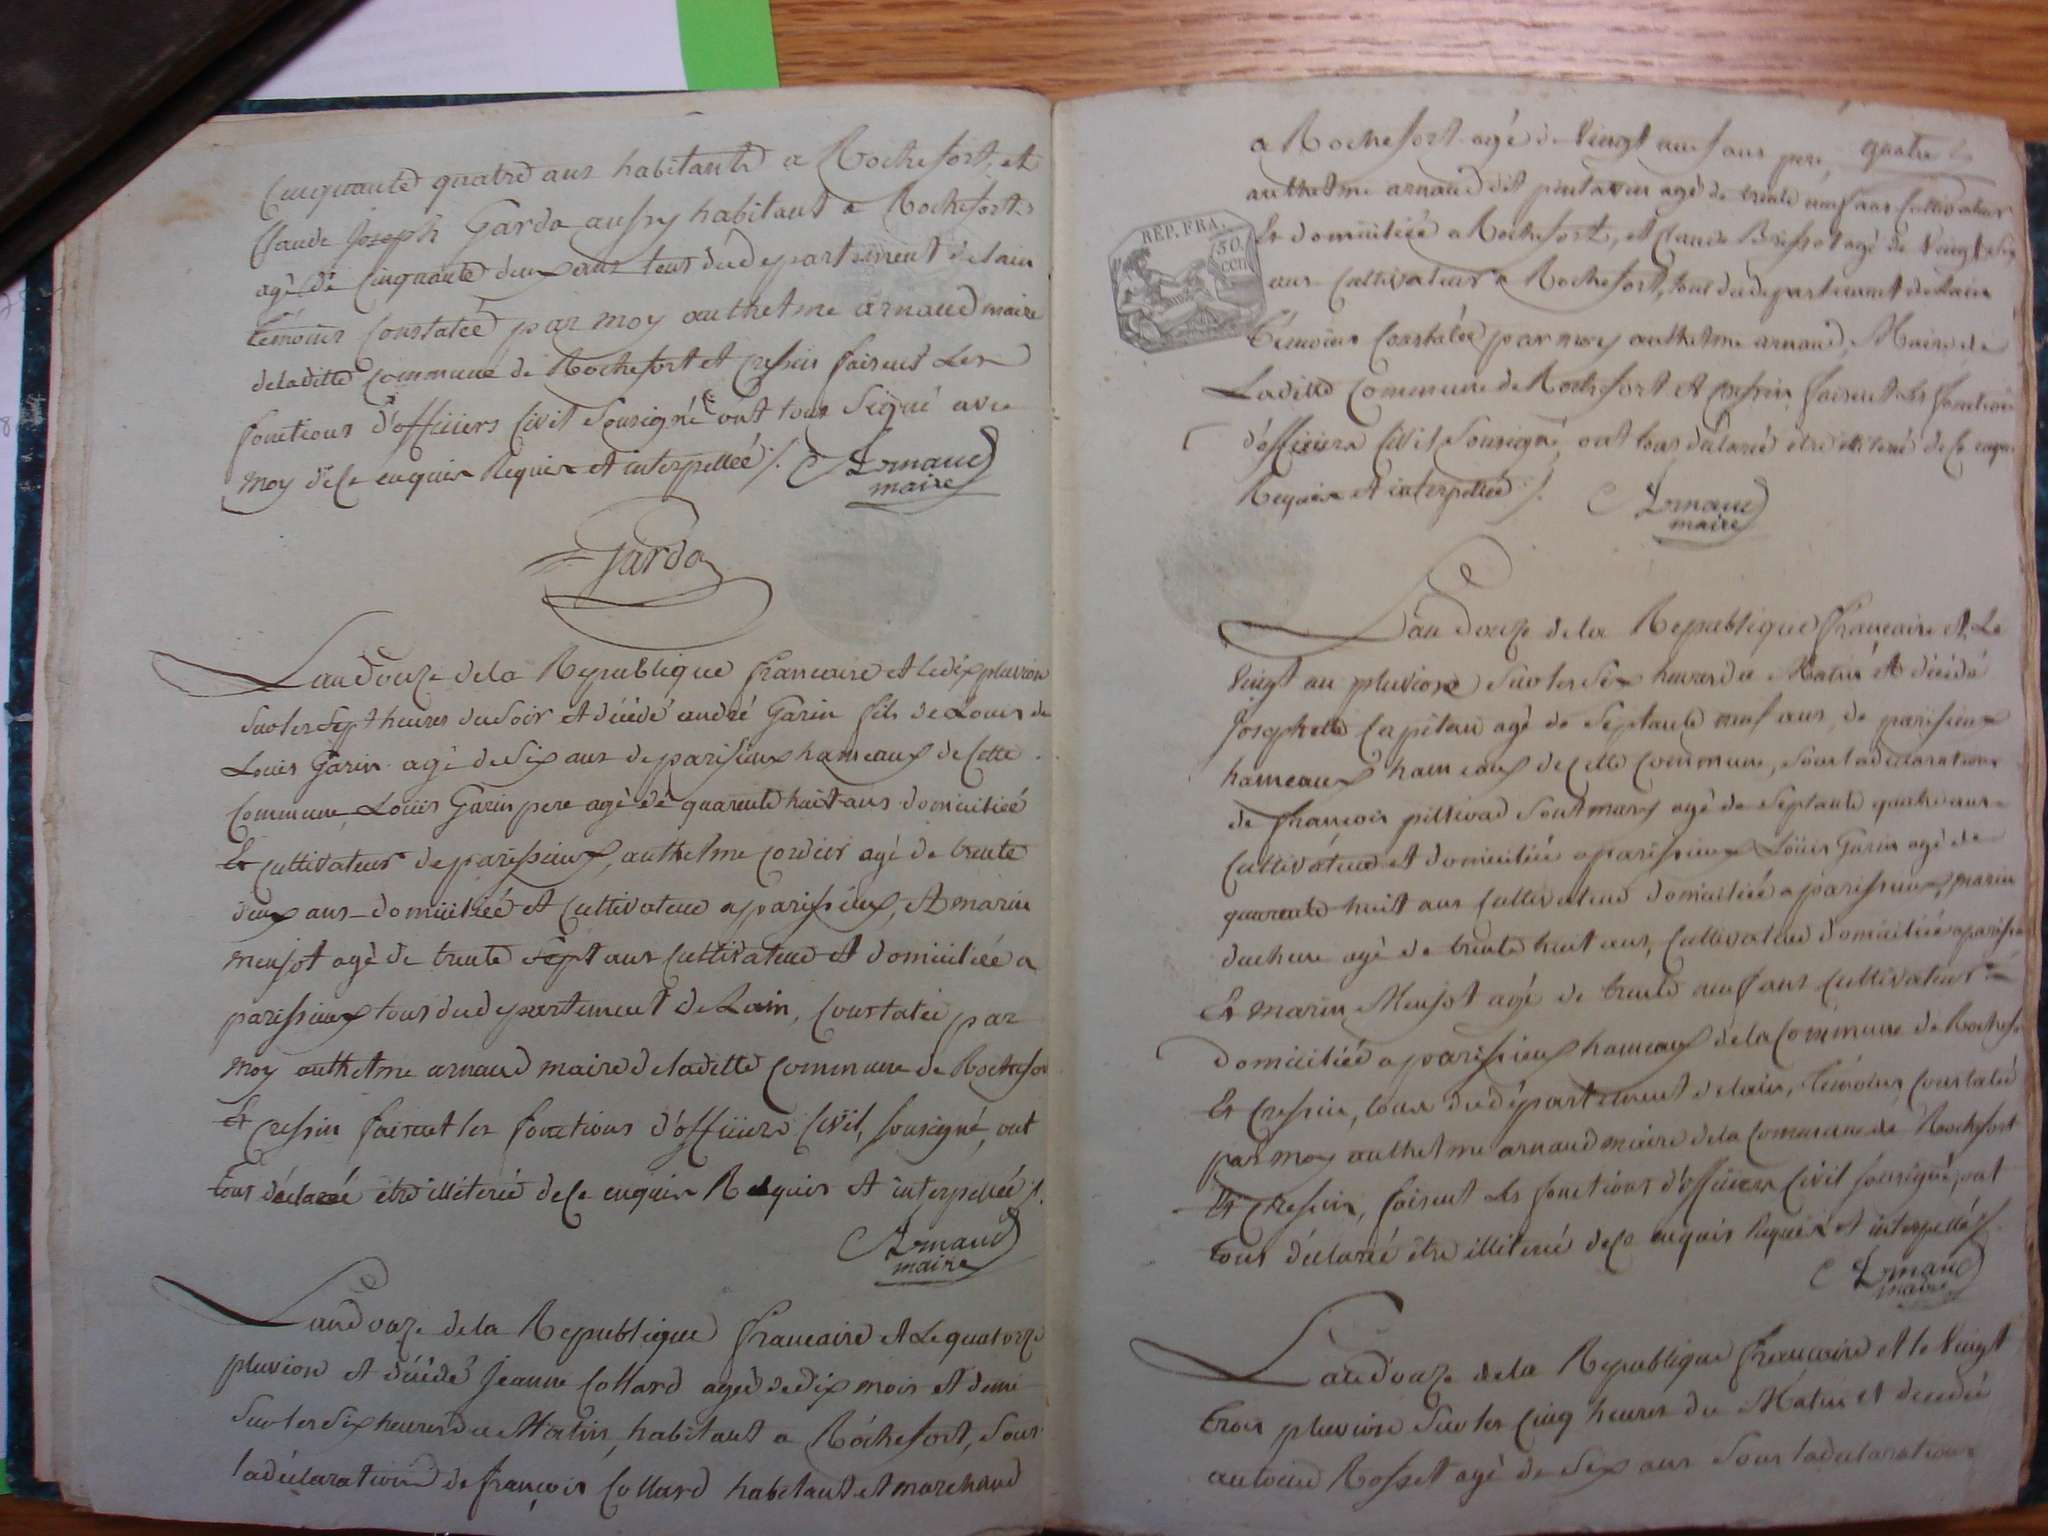 Cinquante quatre ans habitante a Rochefort, et
Claude Joseph Garda aussy habitant a Rochefort
agè de Cinquante deux ans tous du departement delain
temoins Constateé par moy anthelme arnaud maire
deladitte Commune de Rochefort et cressin faisent Les
fonctions d'officiers Civil Sousigné ont tous Signé avec
moy de Ce enquis Requis et interpelleé /. Arnaud
maire
Garda
Lan douze dela Republique francaise et le dix pluviose
Sur les Sept heures du Soir et décédé andré Garin fils de Louis de
Louis Garin agè de Six ans de parissieux hameaux de Cette
Commune, Louis Garin pere agè de quarente huit ans domicilieé
Et Cultivateur de parissieux, anthelme Cordier agè de trente
deux ans domicilieé et Cultivateur a parissieux, et marin
meujot agè de trente Sept ans Cultivateur et domicilieé a
parissieux tous du departement de Lain, Constateé par
moy anthelme arnaud maire deladitte Commune de Rochefor
Et cressin faisent les fonctions d'officiers Civil, Sousigné, ont
tous déclareé être illiterié de Ce enquis Requis et interpelleé /.
Arnaud
maire
Lan douze de la Republique francaise et Le quatorze
pluviose et décédé Jeanne Collard ageè de dix mois et demi
Sur les Six heures du Matin, habitant a Rochefort, Sous
la déclaration de françois Collard habitant et marchand
a Rochefort agè de Vingt neuf ans pere, quatre
anthelme arnaud dit agè de trente neuf ans Cultivateur
Et domicilieé a Rochefort, et Claude Brissot agè de Vingt Six
ans Cultivateur a Rochefort, tous du departement de Lain
REP. FRA.
50
CEN
témoins Constateé par moy anthelme arnaud, Maire de
Laditte Commune de Rochefort et cressin faisent les fonctions
d'officiers Civil Sousigné, ont tous déclareé être illiterié de Ce enquis
Requis et interpelleé /. Arnaud
maire
Lan douze de la Republique francaise et Le
Vingt un pluviose Sur les Six heures du Matin et décédé
Josephette Capitan agè de Septante neuf ans, de parissieux
hameaux hameaux de Cette Commune, Sous la déclaration
de francois pillivad Sont mary agè de Septante quatre ans
Cultivateur et domicilieé a parissieux Louis Garin agè de
quarente huit ans Cultivateur domicilieé a parissieux, marin
duchene agè de trente huit ans, Cultivateur domicilieé a parissi
Et marin Meujot agè de trente neuf ans Cultivateur
domicilieé a parissieux hameaux de la Commune de Rochefo
Et cressin, tous du departement de lain, témoins, Constateé
par moy anthelme arnaud maire de la Commune de Rochefort
Et cressin, faisent les fonctions d'officiers Civil Sousigné, ont
tous déclareé être illiterié de Ce enquis Requis et interpelleé /.
Arnaud
maire
Lan douze de la Republique francaise et le Vingt
trois pluviose Sur les Cinq heures du Matin et decedeé
antoine Rosset agè de Six ans Sous la déclaration